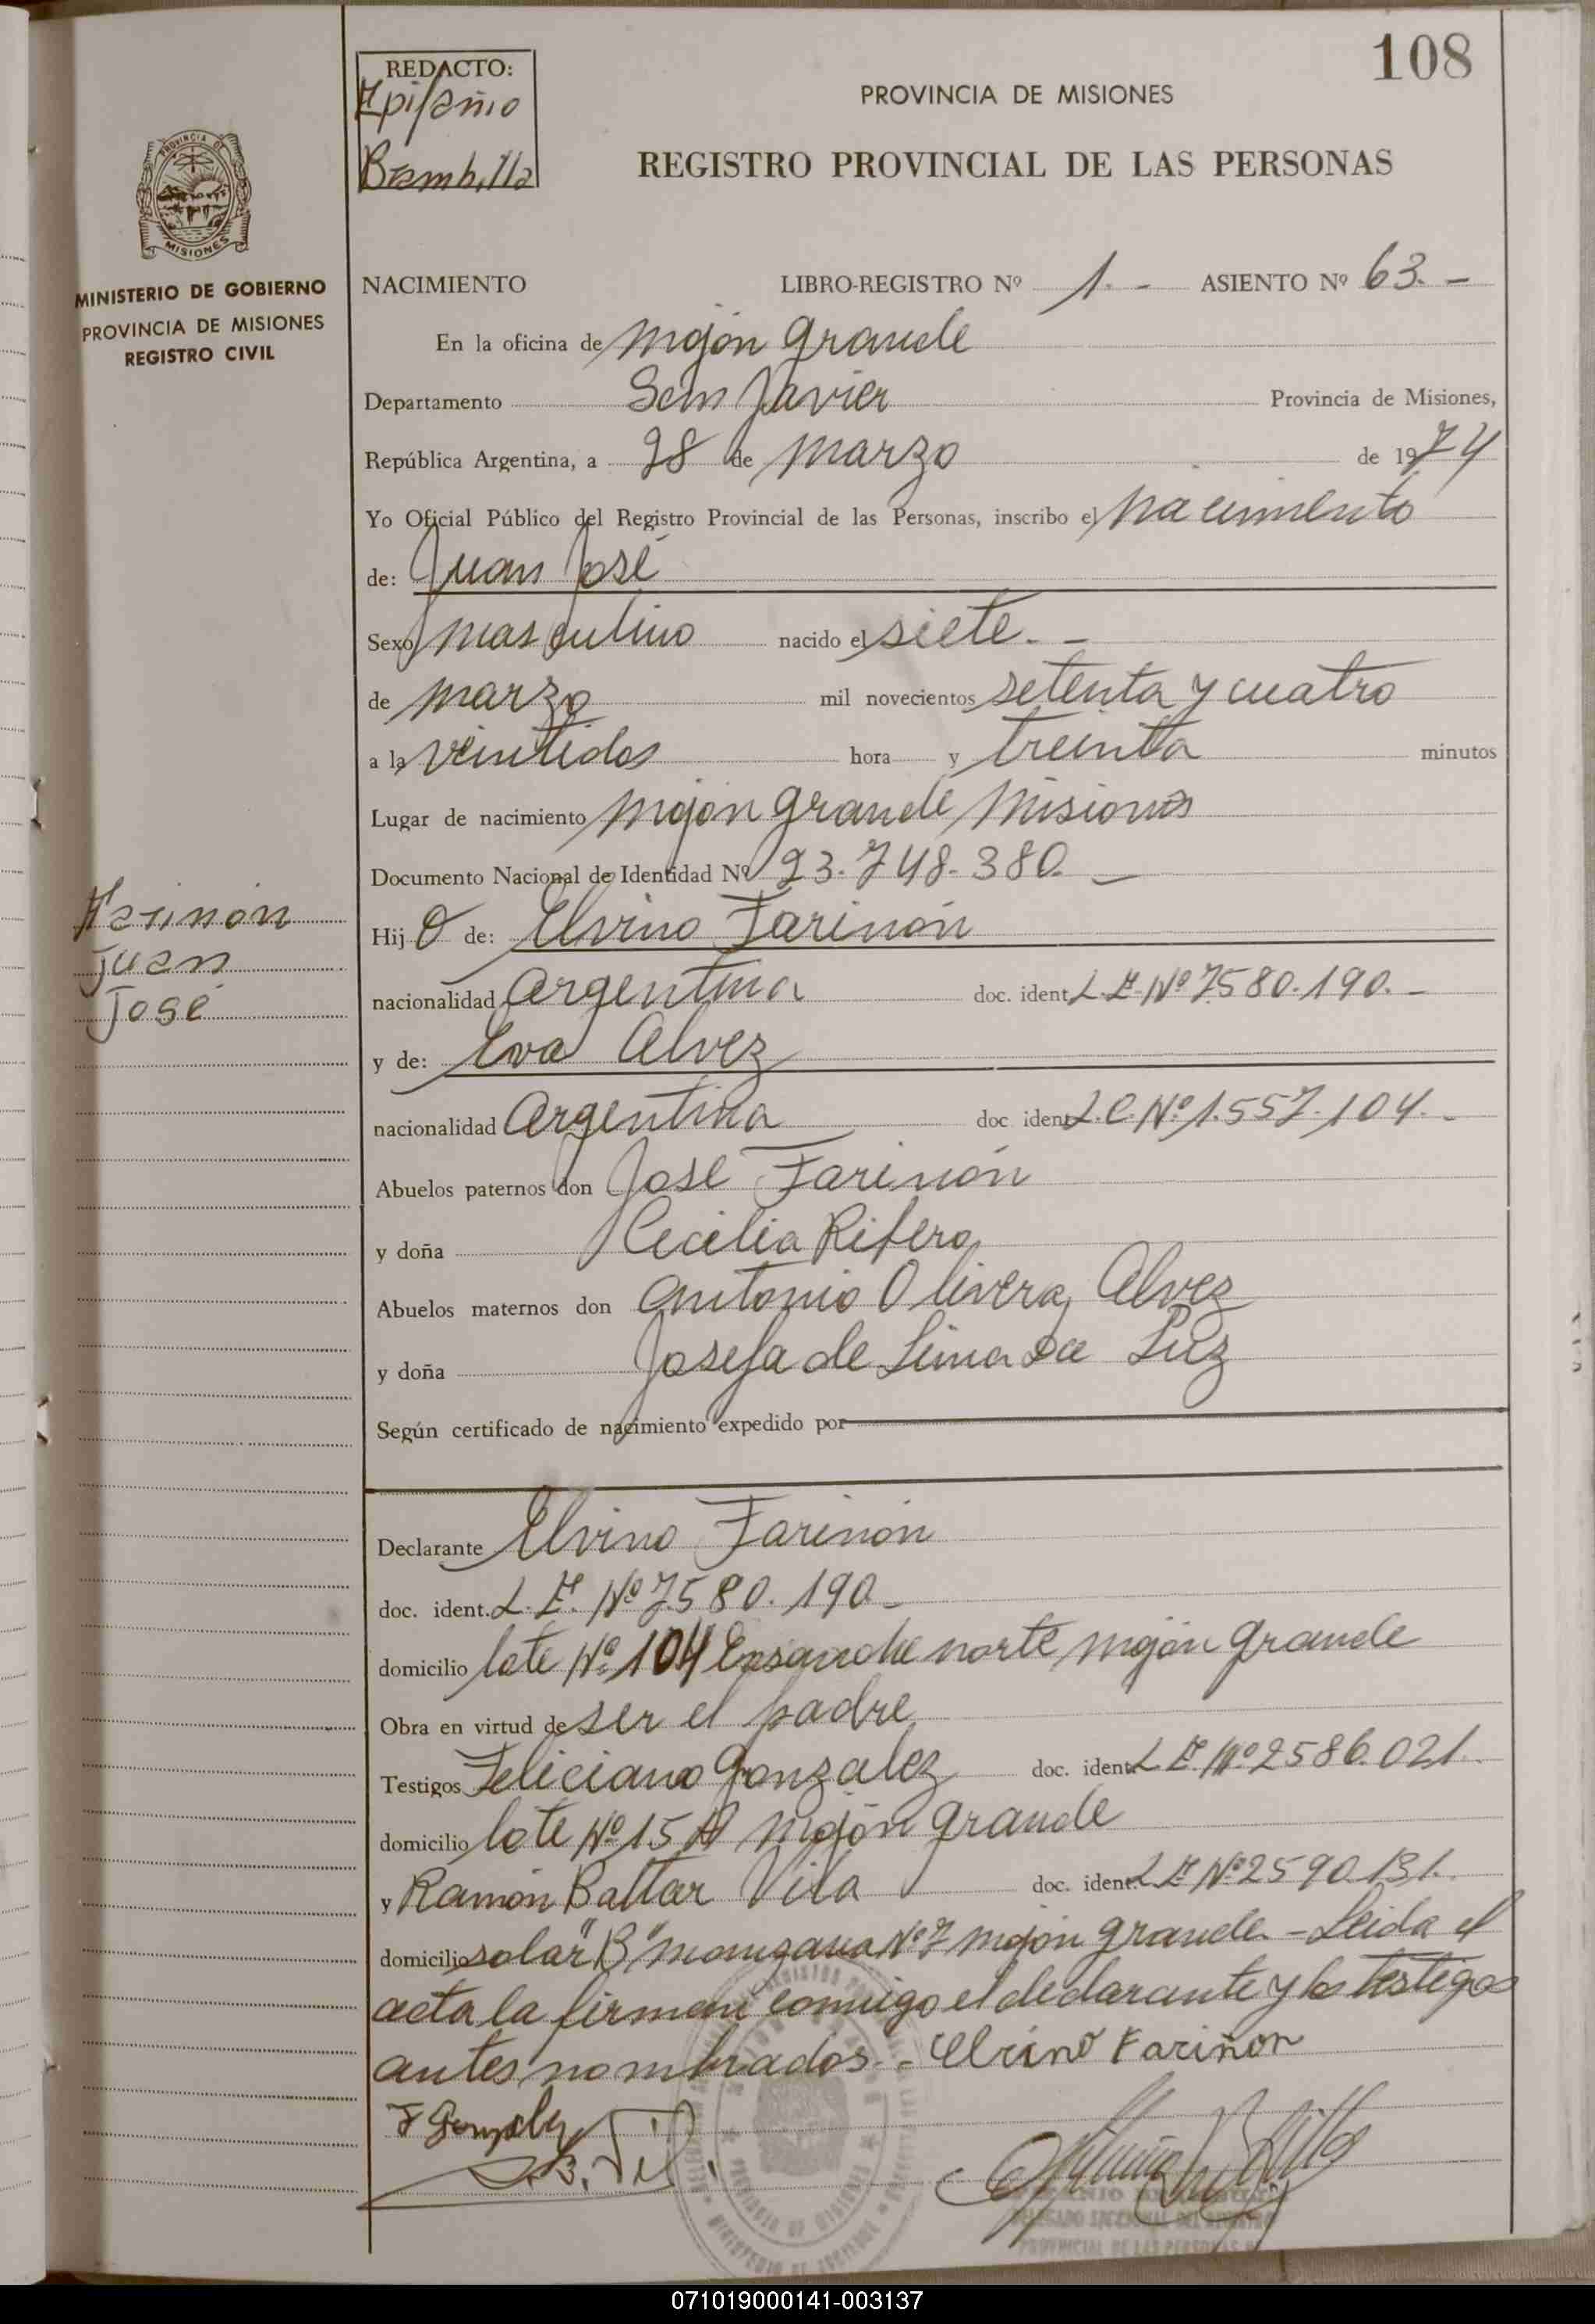 108
REDACTO:
Epifanio
Brambilla
PROVINCIA DE MISIONES
REGISTRO PROVINCIAL DE LAS PERSONAS
PROVINCIA DE
MISIONES
MINISTERIO DE GOBIERNO
PROVINCIA DE MISIONES
REGISTRO CIVIL
NACIMIENTO LIBRO-REGISTRO Nº 1.- ASIENTO Nº 63.-
En la oficina de Mojón Grande
Departamento San Javier Provincia de Misiones,
República Argentina, a 28 de Marzo de 1974
Yo Oficial Público del Registro Provincial de las Personas, inscribo el nacimiento
de: Juan José
Sexo masculino nacido el siete.-
de marzo mil novecientos setenta y cuatro
a la veintidos hora y treinta minutos
Lugar de nacimiento Mojón Grande Misiones
Documento Nacional de Identidad Nº 23.748.380.-
Farinon
Juan
José
Hijo de: Elvino Farinón
nacionalidad Argentina doc. ident. L.E. Nº 7580.190.-
y de: Eva Alvez
nacionalidad Argentina doc ident. L.C. Nº 1.557.104.-
Abuelos paternos don José Farinón
y doña Cecilia
Abuelos maternos don Antonio Olivera Alvez
y doña Josefa de Lima Da Luz
Según certificado de nacimiento expedido por
Declarante Elvino Farinón
doc. ident. L.E. Nº 7.580.190-
domicilio lote Nº 104 Ensanche norte Mojón Grande
Obra en virtud de ser el padre
Testigos Feliciano Gonzalez doc. ident. L.E. Nº 2586.021.
domicilio lote Nº 15 A Mojón Grande
y Ramón Baltar Vila doc. ident. L.E. Nº 2590.131.
domicilio solar "B" manzana Nº 7 Mojón Grande.- Leida el
acta la firman conmigo el declarante y los testigos
antes nombrados.- Elvino Fariñon
F Gonzalez
PROVINCIA DE MISIONES
071019000141-003137